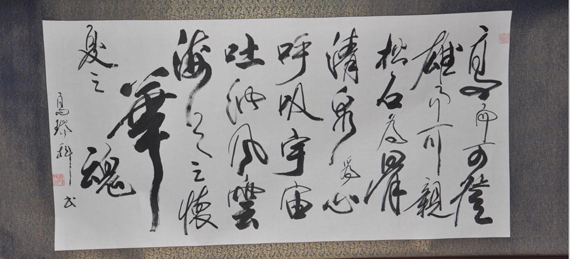 高而可登
雄而可親
松石為骨
清泉為心
呼吸宇宙
吐納風雲
海天之懷
華
夏之魂